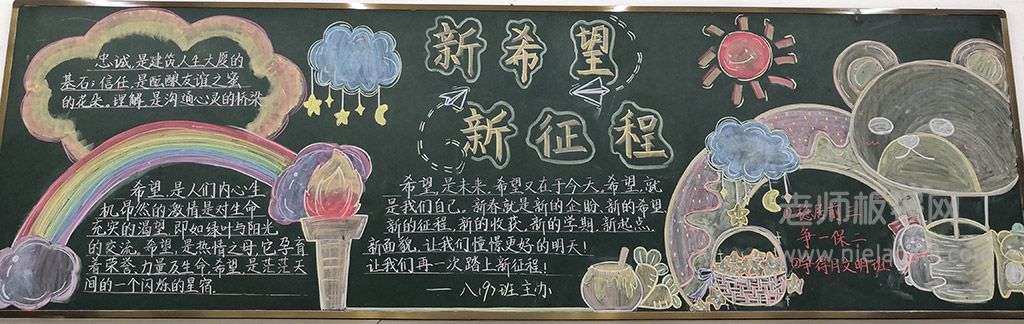 忠诚,是建筑人生大厦的
基石;信任,是酝酿友谊之蜜
的花朵。理解,是沟通心灵的桥梁
新希望
新征程
希望,是人们内心生
机昂然的激情是对生命
充实的渴望,即如绿叶与阳光
的交流。希望,是热情之母,它孕育
着荣誉、力量及生命,希望,是茫茫天
间的一个闪烁的星宿.
希望,是未来,希望又在于今天,希望,就
是我们自己。新春就是新的企盼、新的希望
新的征程、新的收获、新的学期、新起点、
新面貌,让我们憧憬更好的明天!
让我们再一次踏上新征程!
——八(9)班主办
争一保二
老师板报网